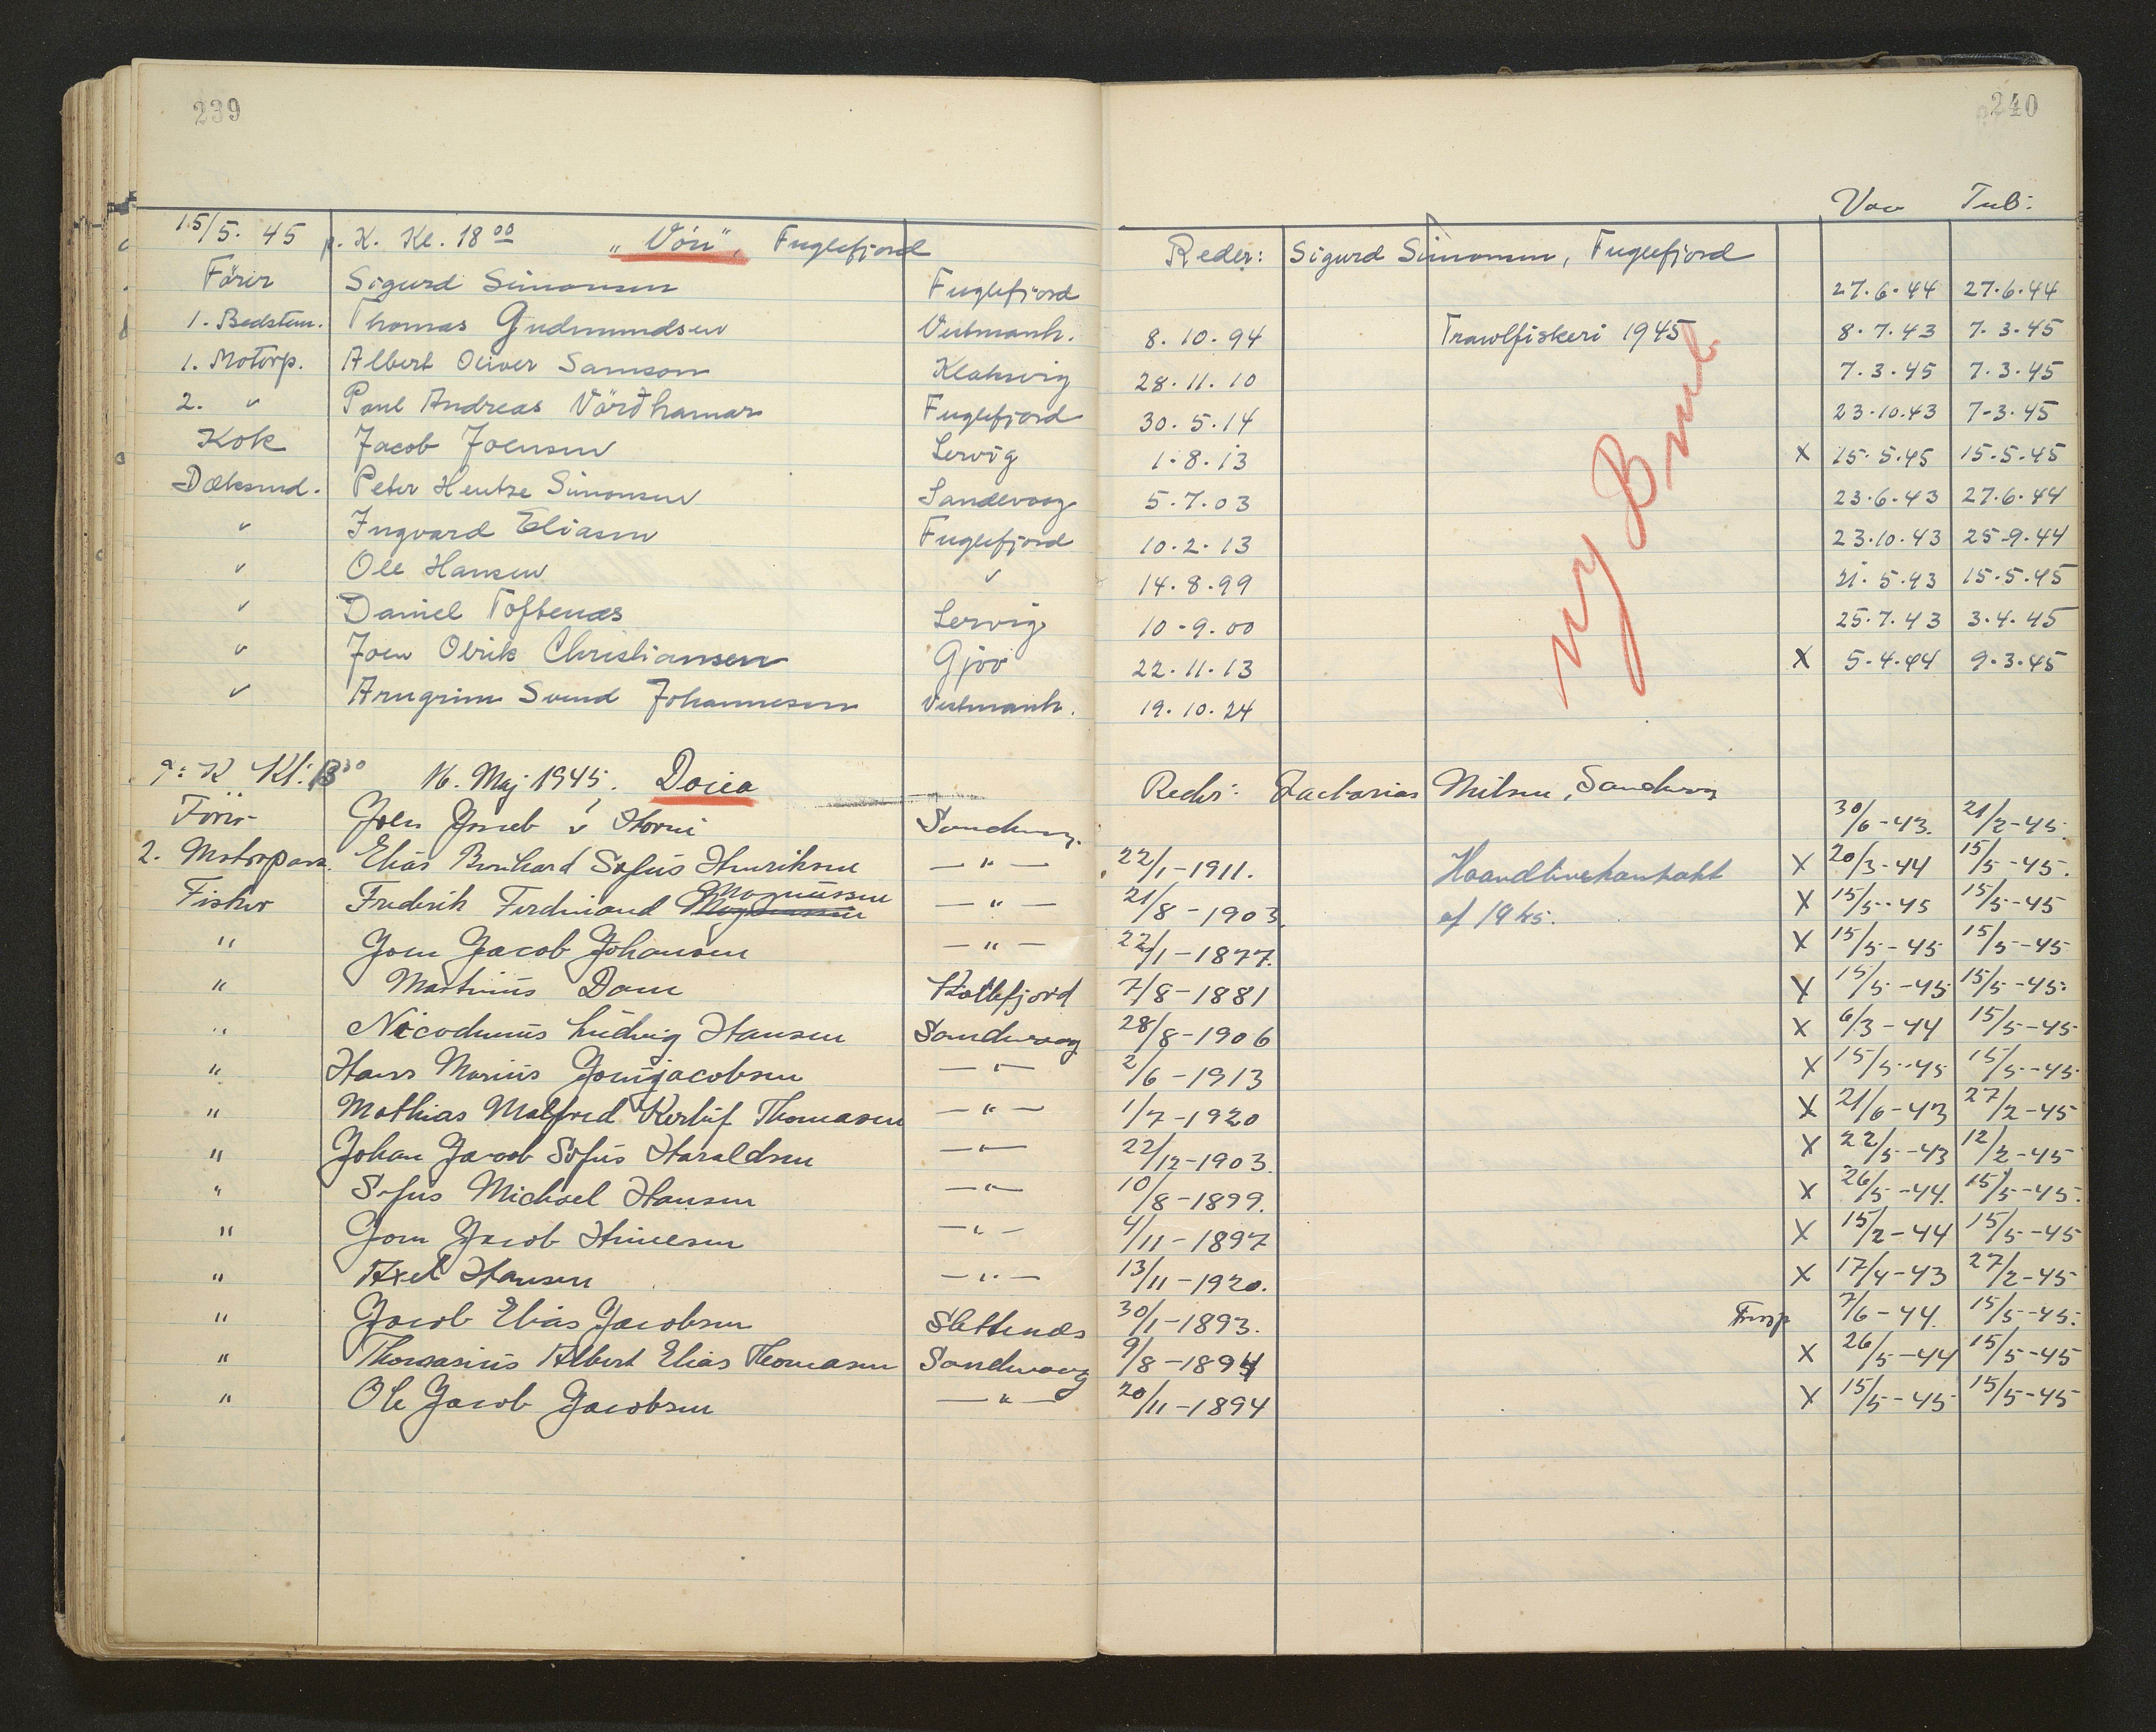 239
240
Vac Tub:
15/5. 45 p. K. Kl. 18 00 „Vón", Fuglefjord Reder: Sigurd Simonsen, Fuglefjord
Förer Sigurd Simonsen Fuglefjord 27.6.44 27.6.44
1. Bedstem. Thomas Gudmundsen Vestmanh. 8.10.94 Trawlfiskeri 1945 8.7.43 7.3.45
1. Motorp. Albert Oliver Samson Klaksvig 28.11.10 7.3.45 7.3.45
2. " Paul Andreas Vördhamar Fuglefjord 30.5.14 23.10.43 7-3.45
Kok Jacob Joensen Lervig 1.8.13 X 15.5.45 15.5.45
Dæksmd. Peter Hentze Simonsen Sandevaag 5.7.03 23.6.43 27.6.44
" Ingvard Eliasen Fuglefjord 10.2.13 23.10.43 25.9.44
" Ole Hansen " 14.8.99 21.5.43 15.5.45
" Daniel Toftenæs Lervig 10.9.00 25.7.43 3.4.45
" Joen Olrik Christiansen Gjov 22.11.13 X 5.4.44 9.3.45
" Arngrim Svend Johannesen Vestmanh. 19.10.24
ny Brug
p: K Kl: 13 30 16. Maj 1945. Doiea Reder: Zacharias Nilsen, Sandevaag
Förer Joen Jacob í Horni Sandevaag 30/6-43. 21/2-45.
2. Motorpass. Elias Bernhard Sofus Henriksen —"— 22/1-1911. Haandlinekontrakt X 20/3-44 15/5-45.
Fisker Frederik Ferdinand Magnussen —"— 21/8-1903. af 1945. X 15/5-45 15/5-45
" Joen Jacob Johansen —"— 22/1-1877. X 15/5-45 15/5-45
" Martinus Dam Kollefjord 7/8-1881 X 15/5-45 15/5-45.
" Nicodemus Ludvig Hansen Sandevaag 28/8-1906 X 6/3-44 15/5-45
" Hans Marius Joensjacobsen —"— 2/6-1913 X 15/5-45 15/5-45
" Mathias Malfred Kerluf Thomasen —"— 1/7-1920 X 21/6-43 27/2-45
" Johan Jacob Sofus Haraldsen —"— 22/12-1903. X 22/5-43 12/2-45
" Sofus Michael Hansen —"— 10/8-1899. X 26/5-44. 15/5-45.
" Joen Jacob —"— 4/11-1897 X 15/2-44 15/5-45
" Axel Hansen —"— 13/11-1920. X 17/4-43 27/2-45
" Jacob Elias Jacobsen Slettenæs 30/1-1893. 7/6-44. 15/5-45.
" Thomasius Albert Elias Thomasen Sandevaag 9/8-1894 X 26/5-44 15/5-45
" Ole Jacob Jacobsen —"— 20/11-1894 X 15/5-45 15/5-45